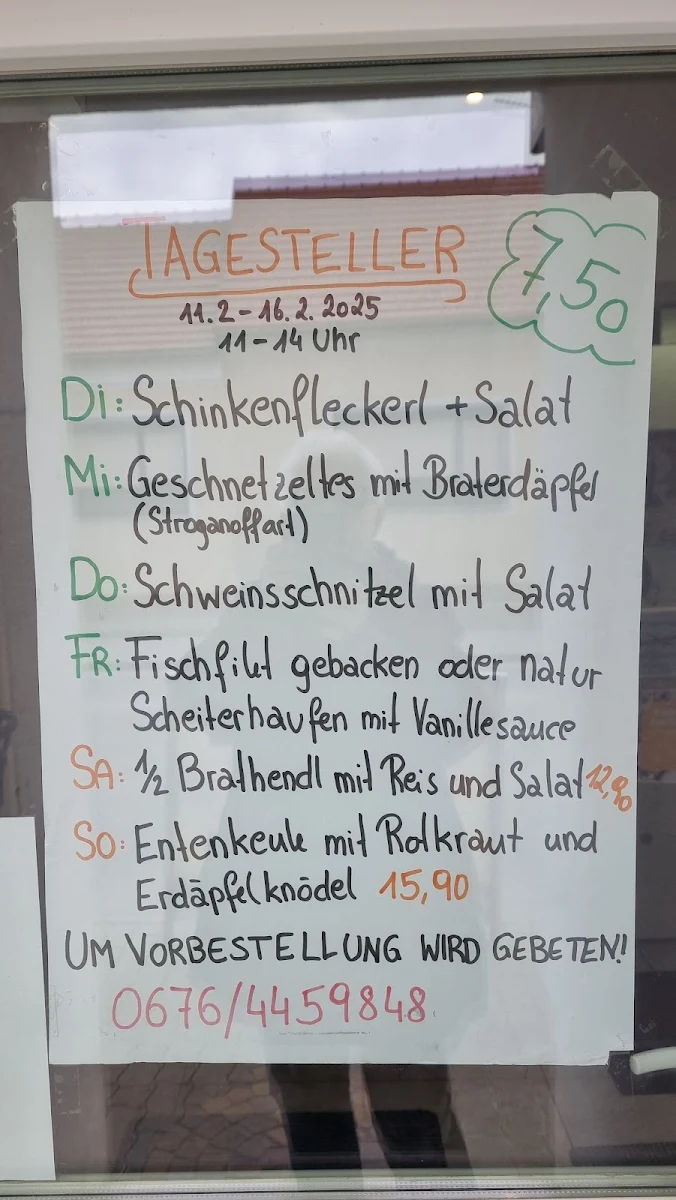 TAGESTELLER
7,50
11.2-16.2.2025
11-14 Uhr
Di: Schinkenfleckerl + Salat
Mi: Geschnetzeltes mit Braterdäpfel
(Stroganoffart)
Do: Schweinsschnitzel mit Salat
FR: Fischfilet gebacken oder natur
Scheiterhaufen mit Vanillesauce
SA: 1/2 Brathendl mit Reis und Salat 12,90
SO: Entenkeule mit Rotkraut und
Erdäpfelknödel 15,90
UM VORBESTELLUNG WIRD GEBETEN!
0676/4459848